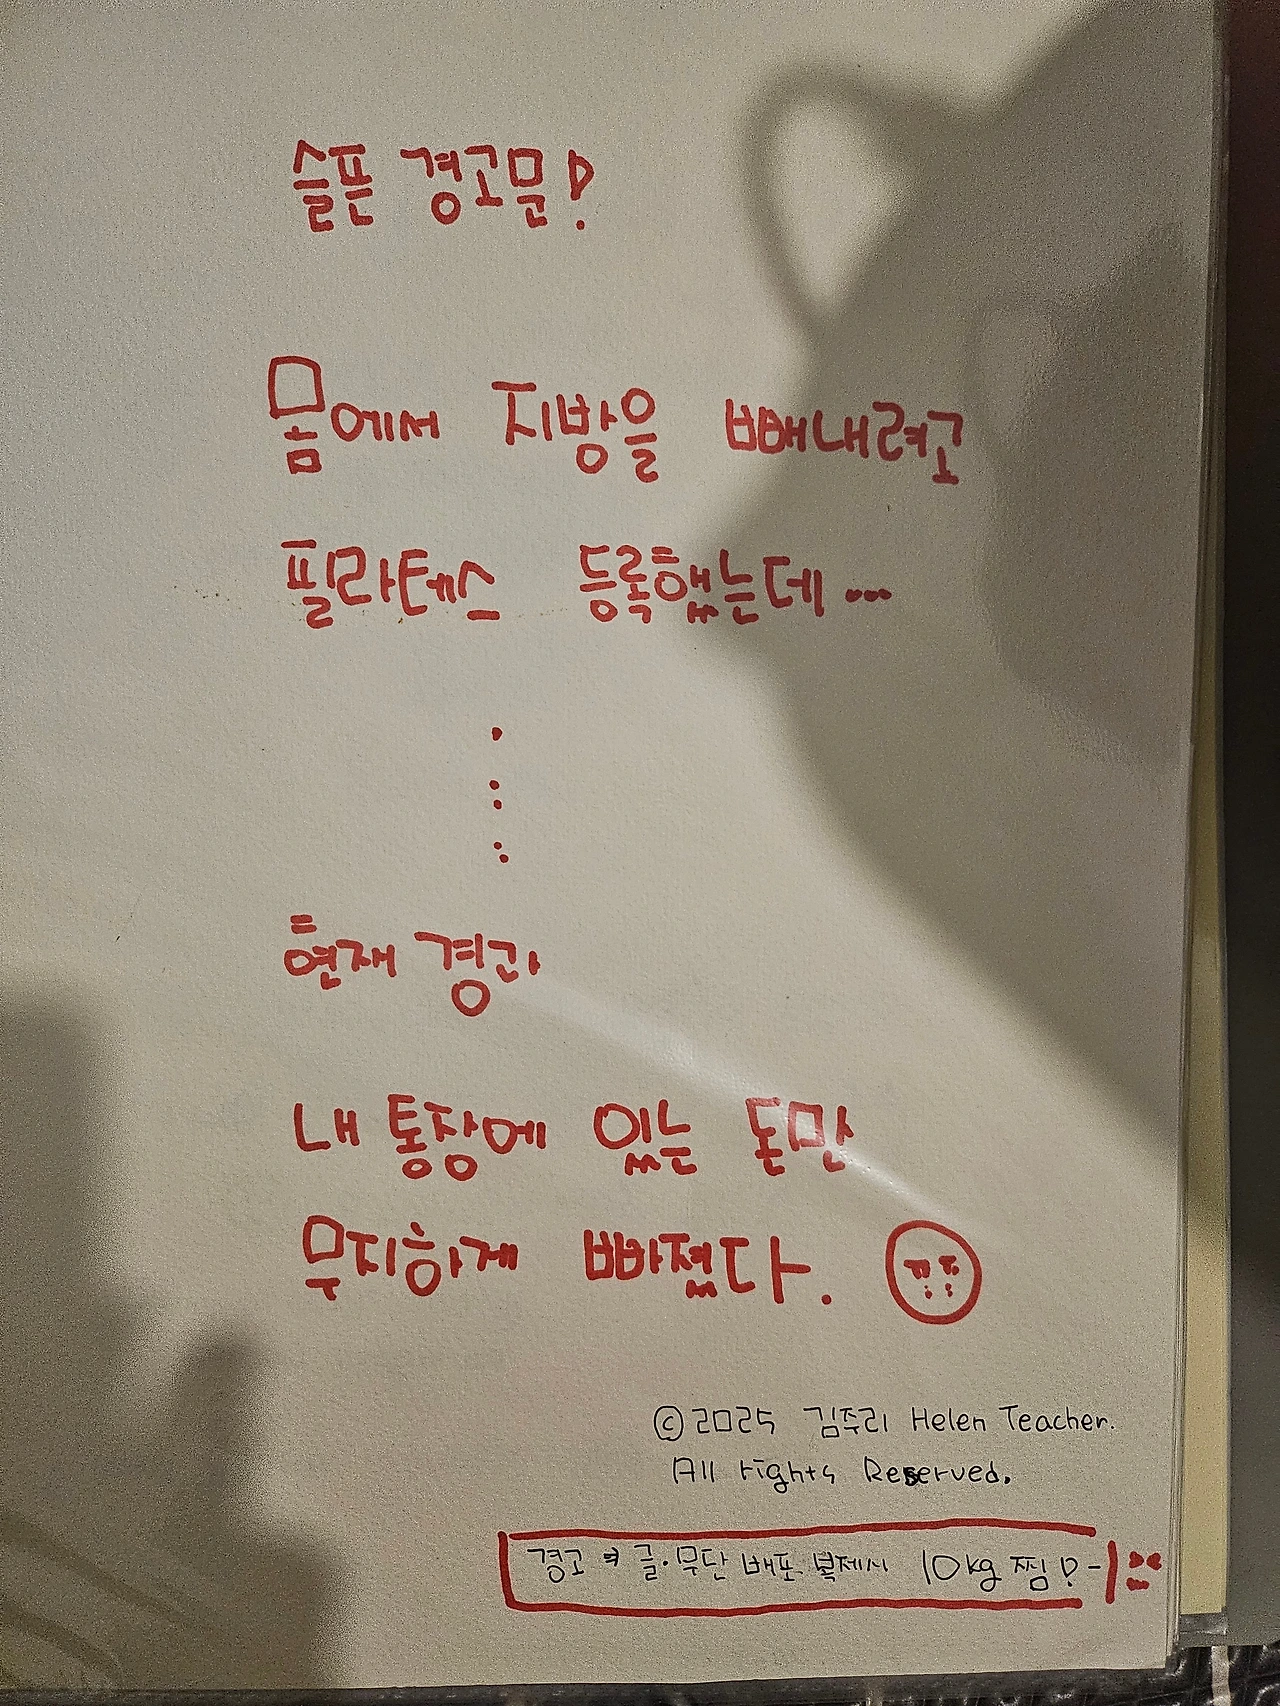 슬픈 경고문!
몸에서 지방을 빼내려고
필라테스 등록했는데...
현재 경과
내 통장에 있는 돈만
무지하게 빠졌다.
©2025 김주리 Helen Teacher.
All rights Reserved.
경고 글·무단 배포 복제시 10kg 찜!